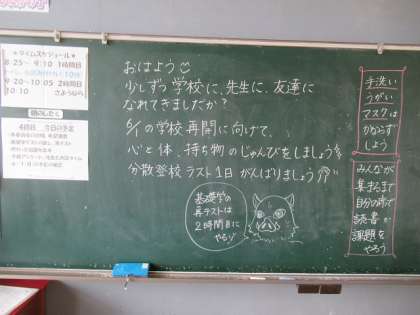 ★タイムスケジュール★
8:25～9:10 1時間目
9:20～10:05 2時間目
10:10 さようなら
朝のしたく
おはよう
少しずつ学校に、先生に、友達に
なれてきましたか?
6/1の学校再開に向けて、
心と体、持ち物のじゅんびをしましょう
分散登校ラスト1日 がんばりましょう
基礎学の
再テストは
2時間目に
やるよ
手洗い
うがい
マスクは
かならず
しよう
みんなが
集まるまで
自分の席で
読書か
課題を
やろう